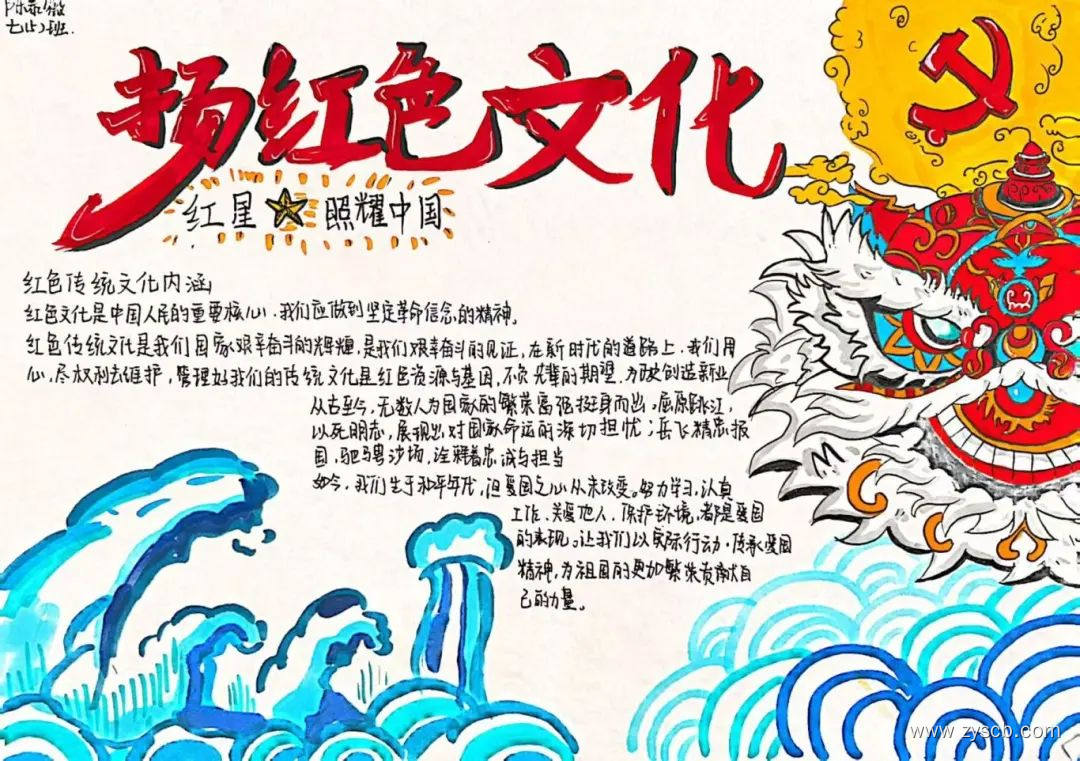 七(5)班.
扬红色文化
红星 照耀中国
红色传统文化内涵
红色文化是中国人民的重要核心,我们应做到坚定革命信念的精神。
红色传统文化是我们国家艰辛奋斗的辉煌,是我们艰辛奋斗的见证,在新时代的道路上,我们用
心,尽权利去维护,管理好我们的传统文化是红色资源与基因,不负先辈的期望,为创造新业
从古至今,无数人为国家的繁荣富强挺身而出。屈原跳江,
以死明志,展现出对国家命运的深切担忧;岳飞精忠报
国,驰骋沙场,诠释着忠诚与担当
如今,我们生于和平年代,但爱国之心从未改变。努力学习,认真
工作、关爱他人,保护环境,都是爱国
的表现。让我们以实际行动,传承爱国
精神,为祖国的更加繁荣贡献自
己的力量。
www.zyscb.com